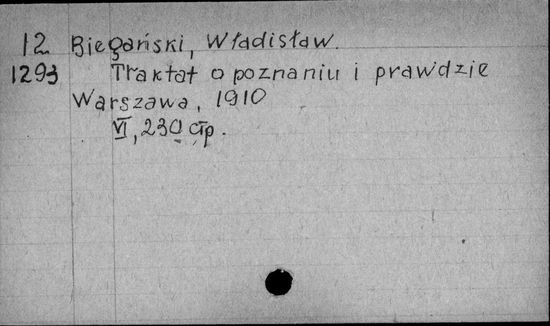 12 Biegański, Władisław.
1293 Traktat o poznaniu i prawdzie
Warszawa, 1910
VI, 230 стр.